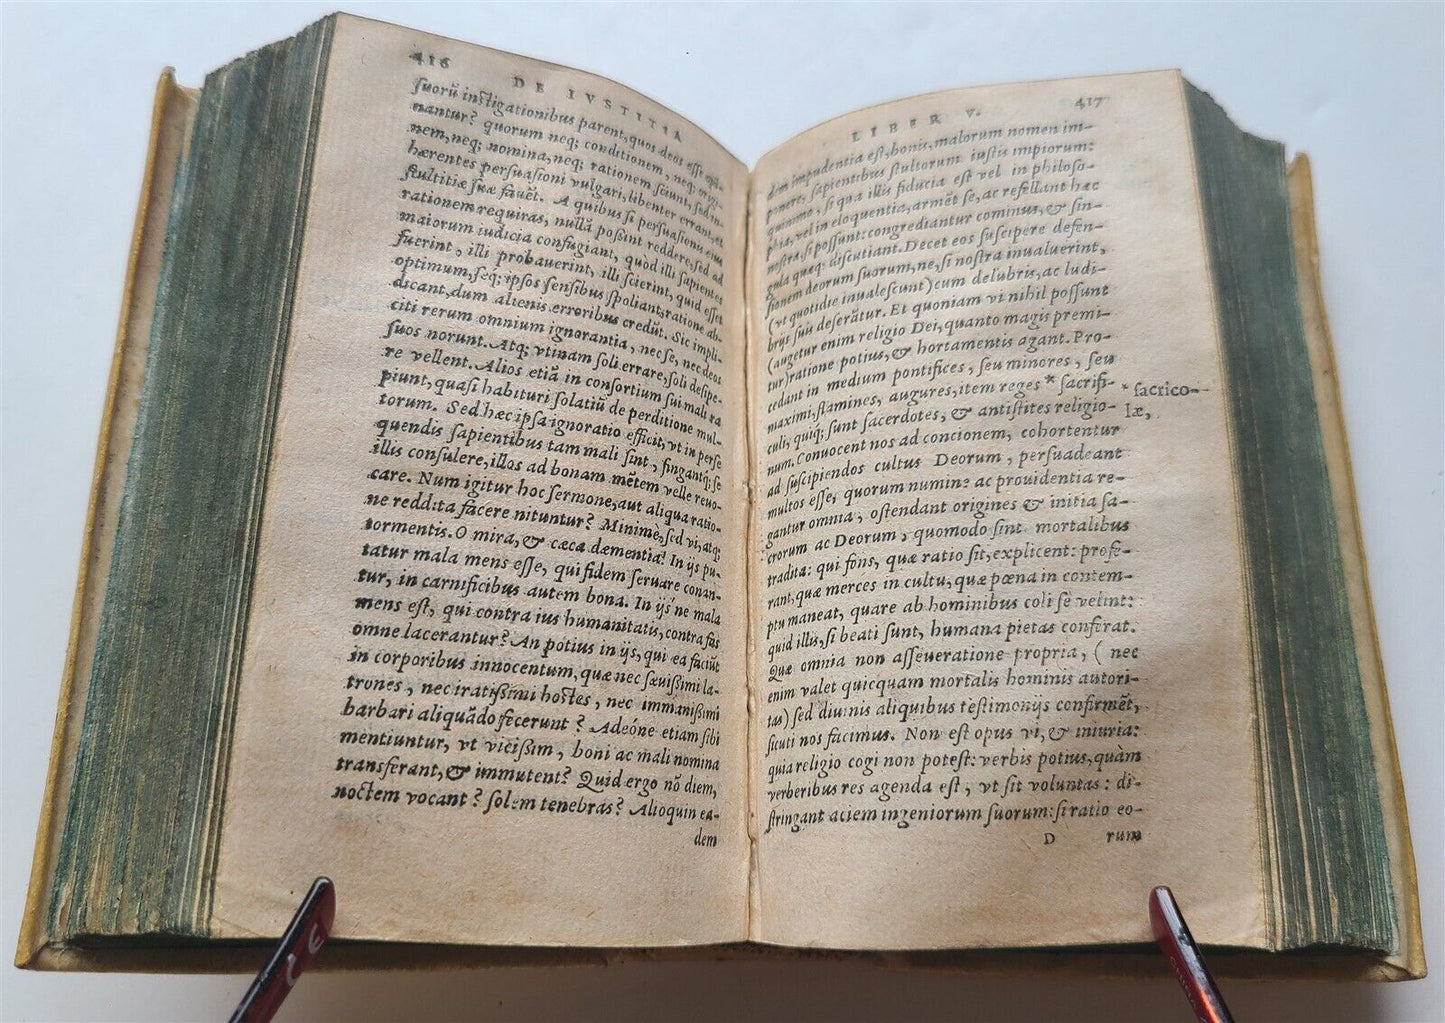 416 DE IVSTITIA
suorũ instigationibus parent, quos deos esse opi-
nantur? quorum neq; conditionem, neq; origi-
nem, neq; nomina, neq; rationem sciunt, sed in-
hærentes persuasioni vulgari, libenter errant, et
stultitiæ suæ fauẽt. A quibus si persuasionis eius
rationem requiras, nullã possint reddere, sed ad
maiorum iudicia confugiant, quòd illi sapientes
fuerint, illi probauerint, illi scierint, quid esset
optimum, seq; ipsos sensibus spoliant, ratione ab-
dicant, dum alienis erroribus credũt. Sic impli-
citi rerum omnium ignorantia, nec se, nec deos
suos norunt. Atq; vtinam soli errare, soli desipe-
re vellent. Alios etiã in consortium sui mali ra
piunt, quasi habituri solatiũ de perditione mul-
torum. Sed hæc ipsa ignoratio efficit, vt in perse
quendis sapientibus tam mali sint, fingantq; se
illis consulere, illos ad bonam mẽtem velle reuo-
care. Num igitur hoc sermone, aut aliqua ratio-
ne reddita facere nituntur? Minimè, sed vi, atq;
tormentis. O mira, & cæca dæmentia! In ijs pu-
tatur mala mens esse, qui fidem seruare conan-
tur, in carnificibus autem bona. In ijs ne mala
mens est, qui contra ius humanitatis, contra fas
omne lacerantur? An potius in ijs, qui ea faciũt
in corporibus innocentum, quæ nec sæuissimi la-
trones, nec iratissimi hostes, nec immanissimi
barbari aliquãdo fecerunt? Adeóne etiam sibi
mentiuntur, vt vicissim, boni ac mali nomina
transferant, & immutent? Quid ergo nõ diem,
noctem vocant? solem tenebras? Alioquin ea-
dem
LIBER V. 417
dem impudentia est, bonis, malorum nomen im-
ponere, sapientibus stultorum iustis impiorum:
quinimo, si qua illis fiducia est vel in philoso-
phia, vel in eloquentia, armẽt se, ac refellant hæc
nostra, si possunt: congrediantur cominus, & sin-
gula quæq; discutiant. Decet eos suscipere defen-
sionem deorum suorum, ne, si nostra inualuerint,
(vt quotidie inualescunt) cum delubris, ac ludi-
brijs suis deserãtur. Et quoniam vi nihil possunt
(augetur enim religio Dei, quanto magis premi-
tur) ratione potius, & hortamentis agant. Pro-
cedant in medium pontifices, seu minores, seu
maximi, flamines, augures, item reges * sacrifi-
culi, quiq; sunt sacerdotes, & antistites religio-
num. Conuocent nos ad concionem, cohortentur
ad suscipiendos cultus Deorum, persuadeant
multos esse, quorum numine ac prouidentia re-
gantur omnia, ostendant origines & initia sa-
crorum ac Deorum, quomodo sint mortalibus
tradita: qui fons, quæ ratio sit, explicent: profe-
rant, quæ merces in cultu, quæ pœna in contem-
ptu maneat, quare ab hominibus coli se velint:
quid illis, si beati sunt, humana pietas conferat.
Quæ omnia non asseueratione propria, (nec
enim valet quicquam mortalis hominis autori-
tas) sed diuinis aliquibus testimonijs confirmẽt,
sicuti nos facimus. Non est opus vi, & iniuria:
quia religio cogi non potest: verbis potius, quàm
verberibus res agenda est, vt sit voluntas: di-
stringant aciem ingeniorum suorum: si ratio eo-
D rum
* sacrico-
læ,